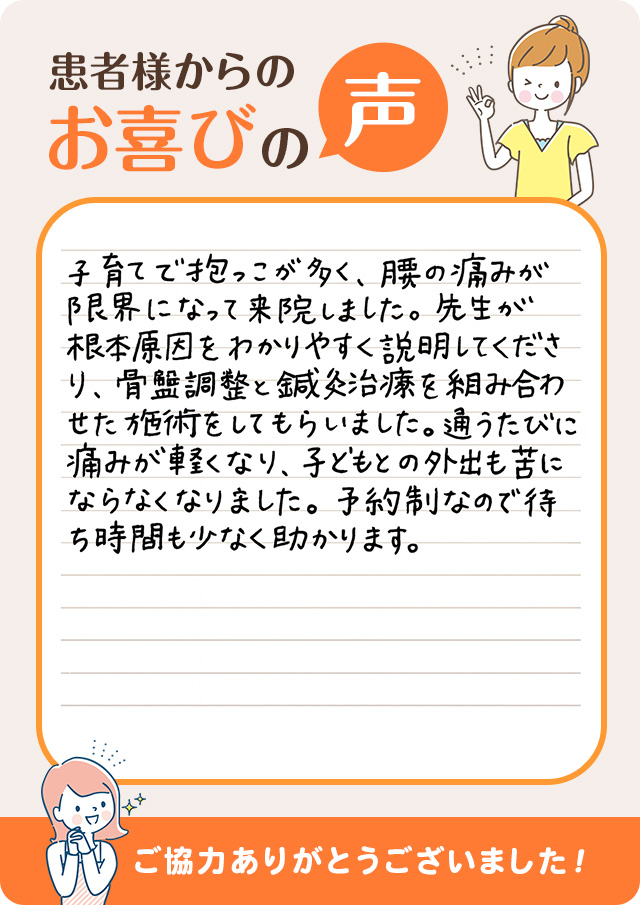 患者様からの
お喜びの声
子育てで抱っこが多く、腰の痛みが
限界になって来院しました。先生が
根本原因をわかりやすく説明してくださ
り、骨盤調整と鍼灸治療を組み合わ
せた施術をしてもらいました。通うたびに
痛みが軽くなり、子どもとの外出も苦に
ならなくなりました。予約制なので待
ち時間も少なく助かります。
ご協力ありがとうございました!